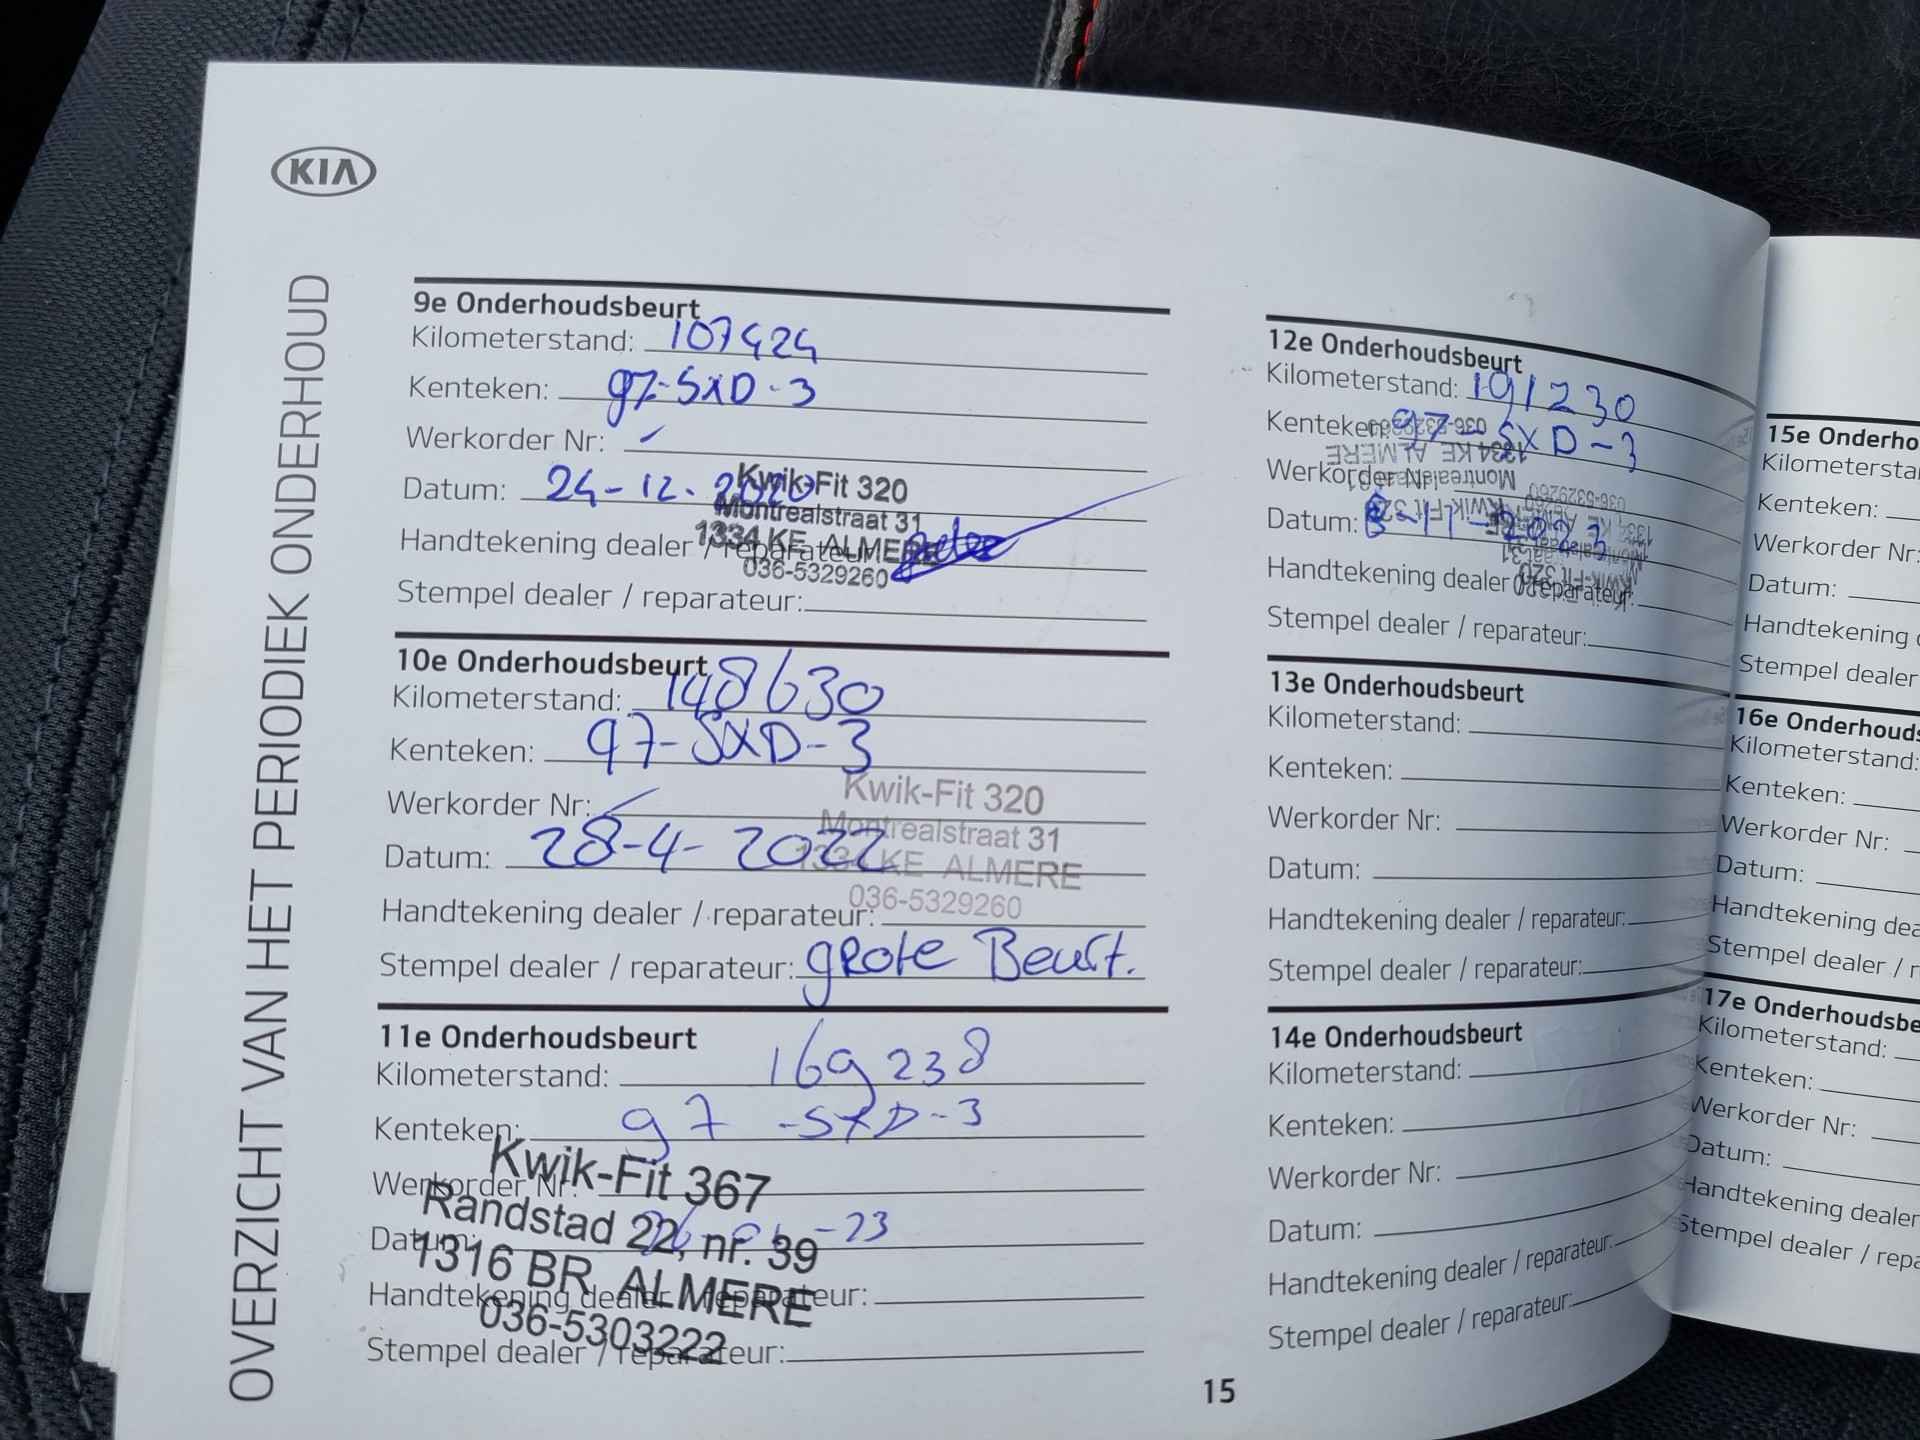 KIA
OVERZICHT VAN HET PERIODIEK ONDERHOUD
9e Onderhoudsbeurt
Kilometerstand: 107424
Kenteken: 97-SXD-3
Werkorder Nr:
Datum: 24-12-2020
Handtekening dealer / reparateur:
Stempel dealer / reparateur:
Kwik-Fit 320
Montrealstraat 31
1334 KE ALMERE
036-5329260
10e Onderhoudsbeurt
Kilometerstand: 148630
Kenteken: 97-SXD-3
Werkorder Nr:
Datum: 28-4-2022
Handtekening dealer / reparateur:
Stempel dealer / reparateur: grote Beurt.
Kwik-Fit 320
Montrealstraat 31
1334 KE ALMERE
036-5329260
11e Onderhoudsbeurt
Kilometerstand: 169238
Kenteken: 97-SXD-3
Werkorder Nr:
Datum: -23
Handtekening dealer / reparateur:
Stempel dealer / reparateur:
Kwik-Fit 367
Randstad 22, nr. 39
1316 BR ALMERE
036-5303222
12e Onderhoudsbeurt
Kilometerstand: 191230
Kenteken: 97-SXD-3
Werkorder Nr:
Datum: 8-11-2023
Handtekening dealer / reparateur:
Stempel dealer / reparateur:
Kwik-Fit 320
1334 KE ALMERE
036-5329260
13e Onderhoudsbeurt
Kilometerstand:
Kenteken:
Werkorder Nr:
Datum:
Handtekening dealer / reparateur:
Stempel dealer / reparateur:
14e Onderhoudsbeurt
Kilometerstand:
Kenteken:
Werkorder Nr:
Datum:
Handtekening dealer / reparateur:
Stempel dealer / reparateur:
15
15e Onderho
Kilometersta
Kenteken:
Werkorder Nr:
Datum:
Handtekening
Stempel dealer
16e Onderhouds
Kilometerstand:
Kenteken:
Werkorder Nr:
Datum:
Handtekening dea
Stempel dealer / r
17e Onderhoudsbe
Kilometerstand:
Kenteken:
Werkorder Nr:
Datum:
Handtekening dealer
Stempel dealer / repa